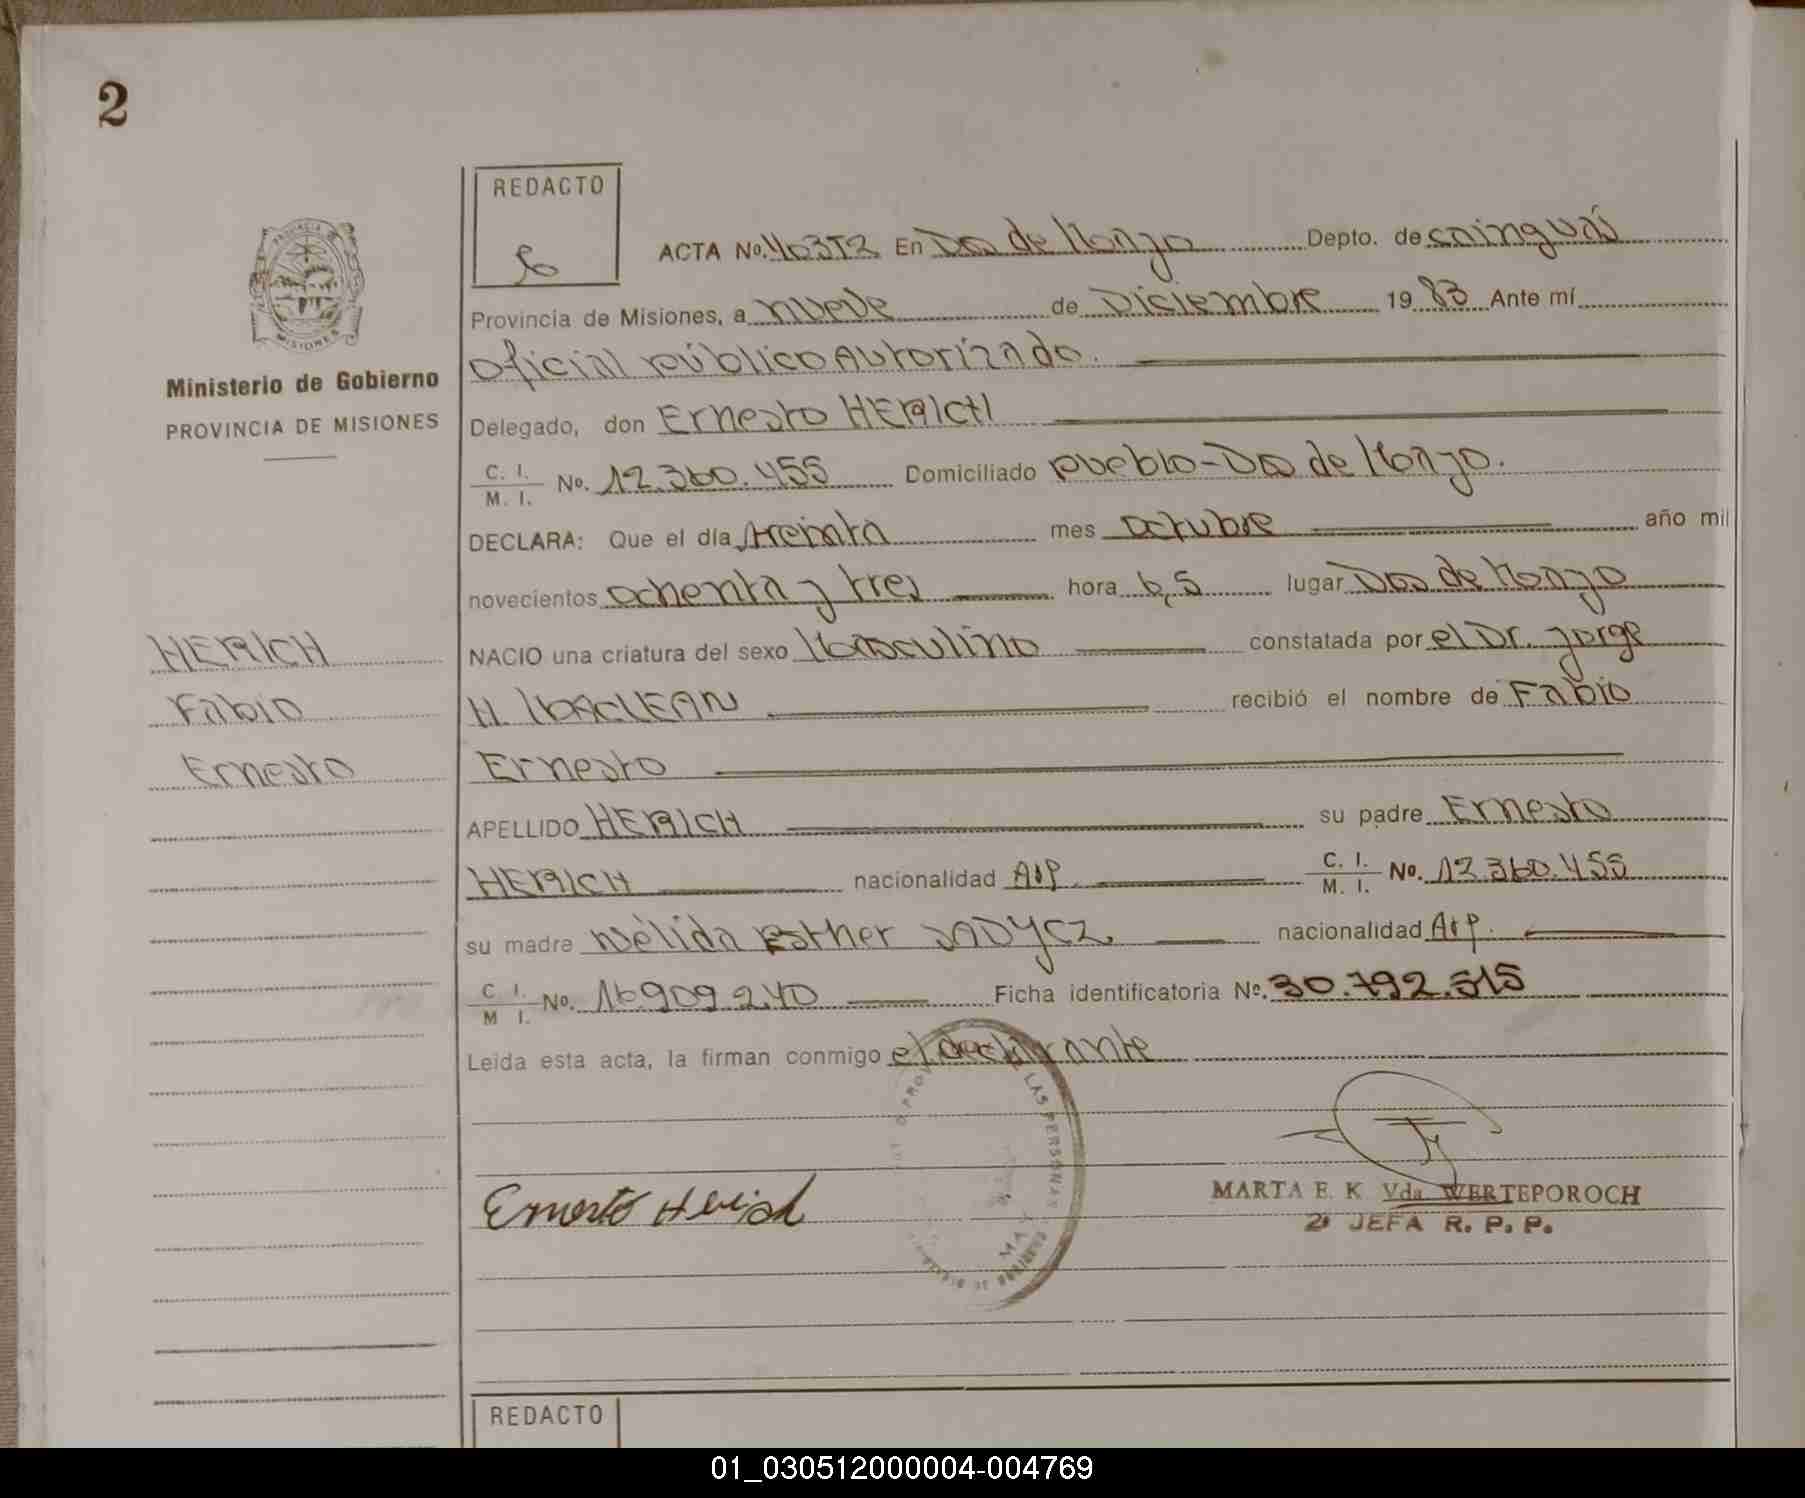 2
REDACTO
ACTA No. 403T2 En Dos de Mayo Depto. de Cainguás
Provincia de Misiones, a nueve de Disiembre 19 83 Ante mí
Oficial público Autorizado.
Ministerio de Gobierno
PROVINCIA DE MISIONES
Delegado, don Ernesto HERICH
C. I.
M. I. No. 12.360.455 Domiciliado pueblo - Dos de Mayo.
DECLARA: Que el día treinta mes octubre año mil
novecientos ochenta y tres hora 6,5 lugar Dos de Mayo
HERICH
NACIO una criatura del sexo Masculino constatada por el Dr. Jorge
Fabio
H. MACLEAN recibió el nombre de Fabio
Ernesto
Ernesto
APELLIDO HERICH su padre Ernesto
HERICH nacionalidad Arg. C. I.
M. I. No. 12.360.455
su madre Nélida Esther SADYCZ nacionalidad Arg.
C I.
M I. No. 16909240 Ficha identificatoria No. 30.792.515
Leida esta acta, la firman conmigo el declarante
LAS PERSONAS
Ernesto Herich
MARTA E. K Vda. WERTEPOROCH
JEFA R. P. P.
REDACTO
01_030512000004-004769